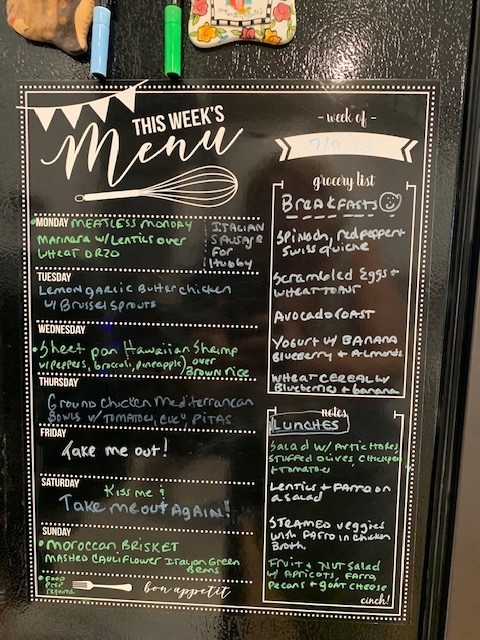 THIS WEEK'S
Menu
MONDAY MEATLESS MONDAY
MARINARA W/LENTILS OVER
WHEAT ORZO
ITALIAN
SAUSAGE
FOR
Hubby
TUESDAY
Lemon garlic Butter chicken
W/ Brussel sprouts
WEDNESDAY
Sheet pan Hawaiian Shrimp
w/peppers, broccoli, pineapple) over
Brown rice
THURSDAY
Ground chicken Mediterranean
Bowls w/ TOMATOES, CUCU, PITAS
FRIDAY
Take me out!
SATURDAY
Kiss me?
Take me out AGAIN!
SUNDAY
MOROCCAN BRISKET
MASHED CAULIFLOWER Italian Green
Beans
FOOD
PREP
required
bon appetit
- week of -
grocery list
BREAKFASTS
Spinach, red pepper +
Swiss quiche
Scrambled Eggs +
WHEAT TOAST
AVOCADO TOAST
YOGURT W/ BANANA
BLUEBERRY + ALMONDS
WHEAT CEREAL W/
Blueberries + banana
notes
LUNCHES
Salad w/ Artichokes,
STUFFED OLIVES, Chickpeas
+ TOMATOES
Lentils + FARRO on
a SALAD
STEAMED veggies
with FARRO in chicken
Broth
FRUIT + NUT SALAD
W/ APRICOTS, FARRO,
Pecans + GOAT CHEESE
cinch!